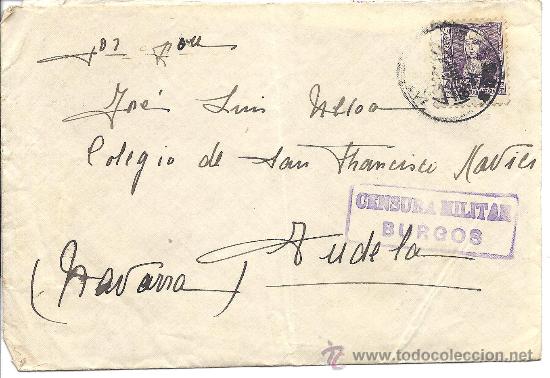 José Luis Ulloa
Colegio de San Francisco Xavier
CENSURA MILITAR
BURGOS
Tudela
(Navarra)
todocoleccion
www.todocoleccion.net